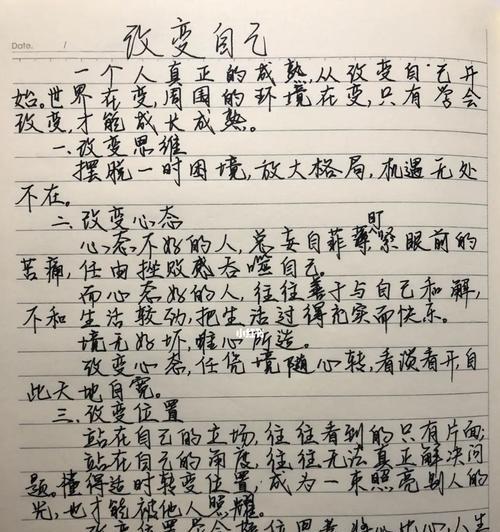 Date. /
改变自己
一个人真正的成熟,从改变自己开
始。世界在变,周围的环境在变,只有学会
改变,才能成长成熟。
一.改变思维
摆脱一时困境,放大格局,机遇无处
不在。
二.改变心态
心态不好的人,总妄自菲薄紧盯眼前的
苦痛,任由挫败感吞噬自己。
而心态好的人,往往善于与自己和解,
不和生活较劲,把生活过得充实而快乐。
小红书
境无好坏,唯心所造。
改变心态,任凭境随心转,看淡看开自
此天地自宽。
三.改变位置
站在自己的立场,往往看到的只有片面;
站在自己的角度,往往无法真正解决问
题。懂得适时转变位置,成为一束照亮别人的
光,也才能被他人照耀。